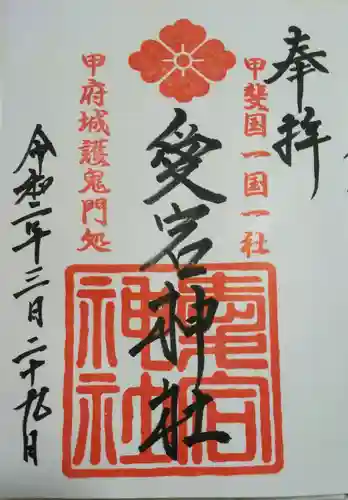 奉拝
甲斐国一国一社
愛宕神社
甲府城護鬼門処
令和二年三日二十九月
愛宕
神社